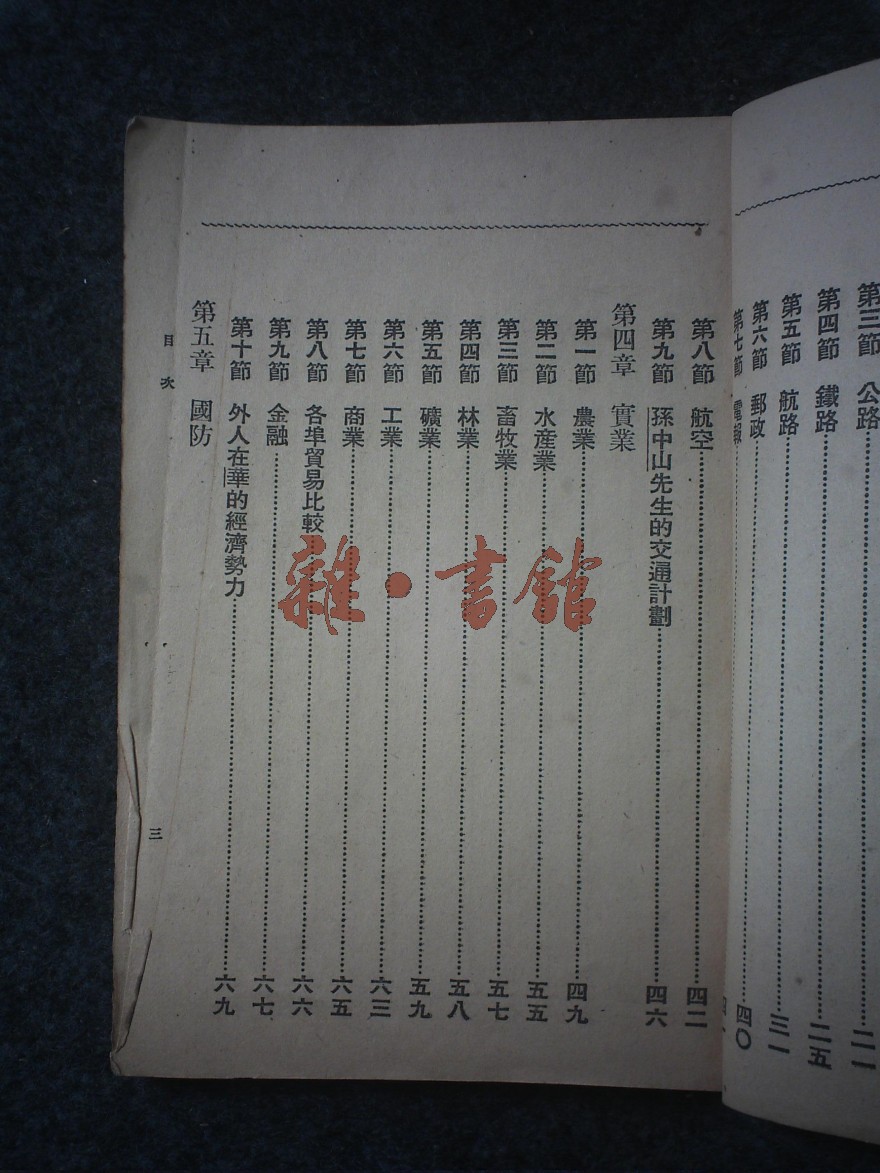 第三節 公路……二一
第四節 鐵路……二五
第五節 航路……三一
第六節 郵政……四〇
第七節 電報……
第八節 航空……四二
第九節 孫中山先生的交通計劃……四六
第四章 實業
第一節 農業……四九
第二節 水產業……五五
第三節 畜牧業……五七
第四節 林業……五八
第五節 礦業……五九
第六節 工業……六三
第七節 商業……六五
第八節 各埠貿易比較……六六
第九節 金融……六七
第十節 外人在華的經濟勢力……六九
第五章 國防
目次
三
雜·書館